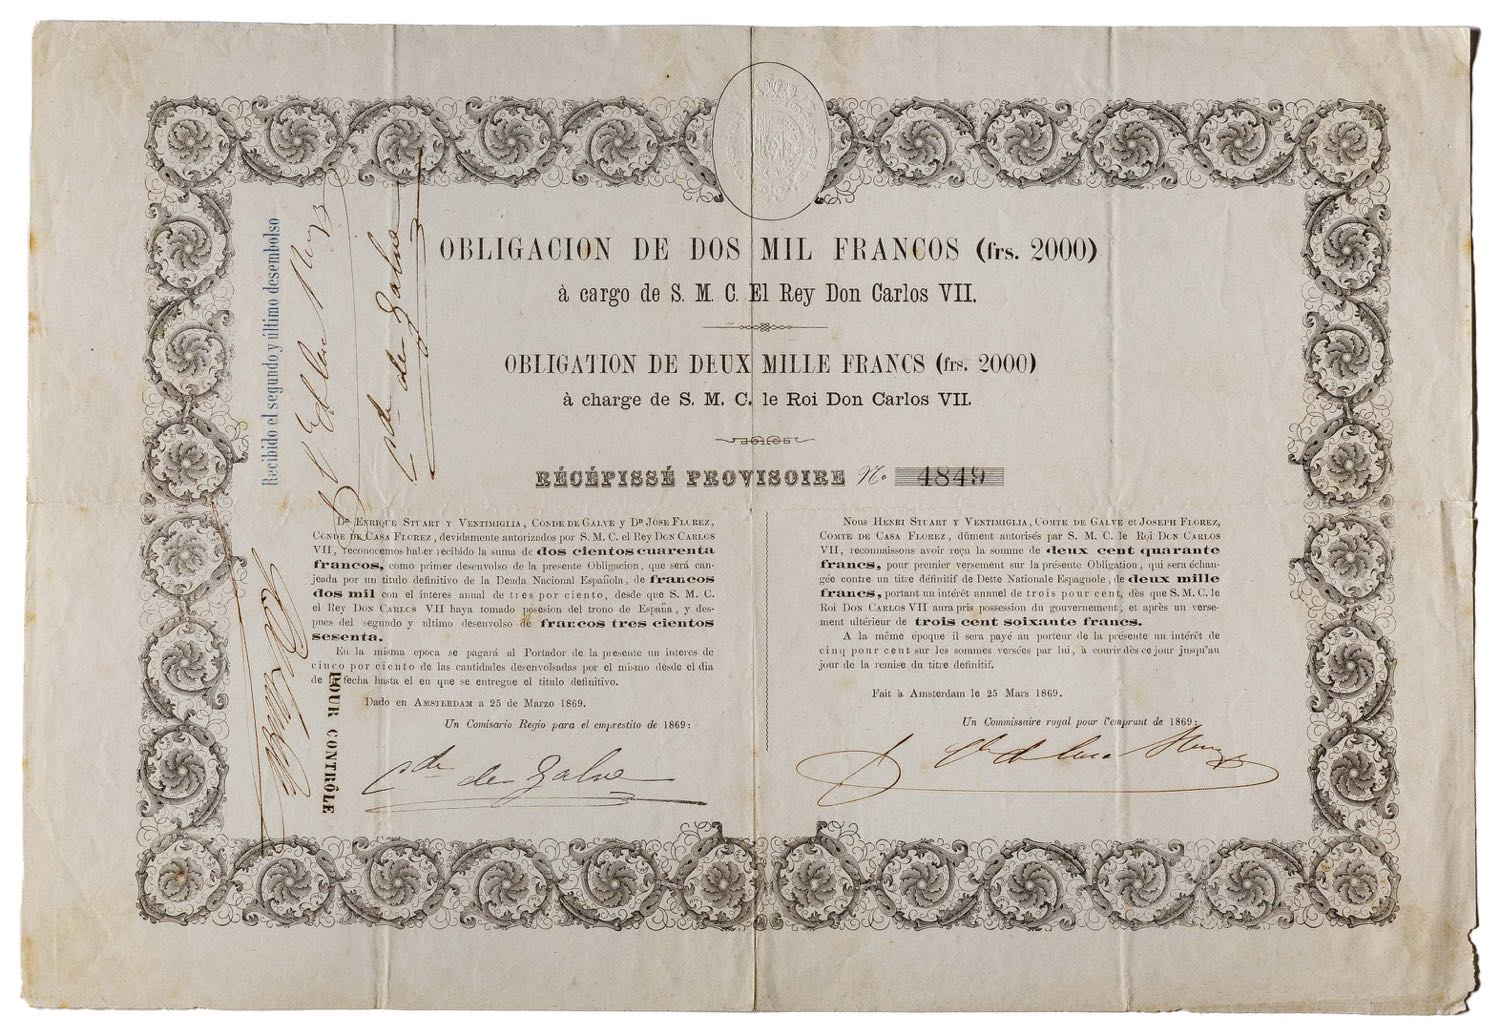 OBLIGACION DE DOS MIL FRANCOS (frs. 2000)
à cargo de S. M. C. El Rey Don Carlos VII.
OBLIGATION DE DEUX MILLE FRANCS (frs. 2000)
à charge de S. M. C. le Roi Don Carlos VII.
RÉCÉPISSÉ PROVISOIRE No. 4849
Recibido el segundo y último desembolso
Cde de Galve
Dn ENRIQUE STUART Y VENTIMIGLIA, CONDE DE GALVE Y Dn JOSE FLOREZ,
CONDE DE CASA FLOREZ, devidamente autorizados por S. M. C. el Rey DON CARLOS
VII, reconocemos haber recibido la suma de dos cientos cuarenta
francos, como primer desenvolso de la presente Obligacion, que será can-
jeada por un titulo definitivo de la Deuda Nacional Española, de francos
dos mil con el interes anual de tres por ciento, desde que S. M. C.
el Rey DON CARLOS VII haya tomado posesion del trono de España, y des-
pues del segundo y ultimo desenvolso de francos tres cientos
sesenta.
En la misma epoca se pagará al Portador de la presente un interes de
cinco por ciento de las cantidades desenvolsadas por el mismo desde el dia
de fecha hasta el en que se entregue el titulo definitivo.
Dado en AMSTERDAM a 25 de Marzo 1869.
Un Comisario Regio para el emprestito de 1869:
Cde de Galve
POUR CONTRÔLE
NOUS HENRI STUART Y VENTIMIGLIA, COMTE DE GALVE ET JOSEPH FLOREZ,
COMTE DE CASA FLOREZ, dûment autorisés par S. M. C. le Roi DON CARLOS
VII, reconnaissons avoir reçu la somme de deux cent quarante
francs, pour premier versement sur la présente Obligation, qui sera échan-
gée contre un titre définitif de Dette Nationale Espagnole, de deux mille
francs, portant un intérêt annuel de trois pour cent, dès que S. M. C. le
Roi DON CARLOS VII aura pris possession du gouvernement, et après un verse-
ment ultérieur de trois cent soixante francs.
A la même époque il sera payé au porteur de la présente un intérêt de
cinq pour cent sur les sommes versées par lui, à courir dès ce jour jusqu'au
jour de la remise du titre definitif.
Fait à Amsterdam le 25 Mars 1869.
Un Commissaire royal pour l'emprunt de 1869: